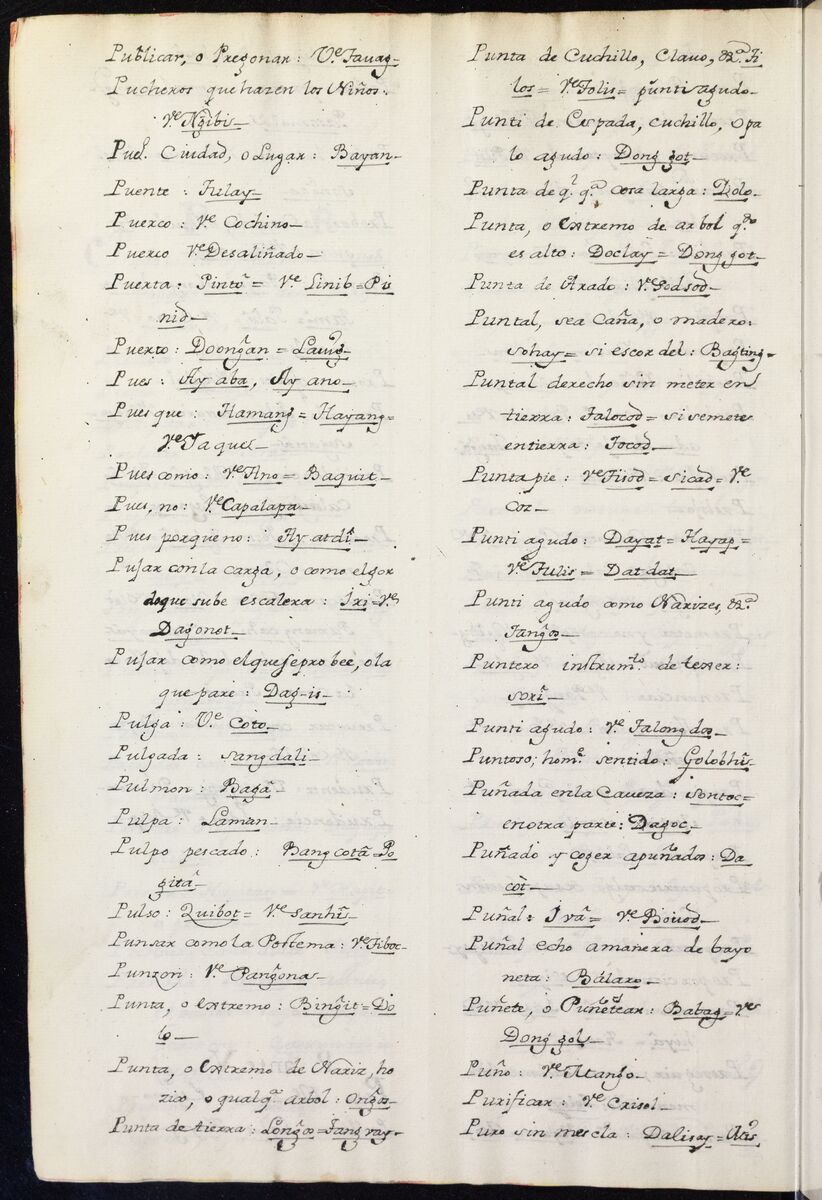 Publicar, o Pregonar: Vᵉ Tauag
Pucheros que hazen los Niños:
Vᵉ Ngibis
Puebˡ. Ciudad, o Lugar: Bayan
Puente: Tulay
Puerco: Vᵉ Cochino
Puerco Vᵉ Desaliñado
Puerta: Pintõ = Vᵉ Linib = Pi
nid
Puerto: Doong̃an =
Pues: Ay aba, Ay ano
Pues que: Hamang = Hayang =
Vᵉ Ya que
Pues como: Vᵉ Ano = Baquit
Pues, no: Vᵉ Capalapa
Pues porque no: Ay atdî
Pujar con la carga, o como el gor
do que sube escalera: Iri = Vᵉ
Dagonot
Pujar como el que se probee, o la
que pare: Dag-is
Pulga: Vᵉ Coto
Pulgada: sangdali
Pulmon: Bagâ
Pulpa: Laman
Pulpo pescado: Bang cotâ = Po
gitâ
Pulso: Quibot = Vᵉ sanhî
Punsar como la Postema: Vᵉ Tiboc
Punzon: Vᵉ Pang̃ona
Punta, o extremo: Bing̃it = Do
lo
Punta, o extremo de Nariz, ho
zico, o qualqᵃ. arbol: Ong̃os
Punta de tierra: Long̃os = Tang vay
Punta de Cuchillo, Clauo, &ᵃ. Ti
los = Vᵉ Tolis = punti agudo
Punti de Espada, cuchillo, o pa
lo agudo: Dong got
Punta de qˡ qᵃ cosa larga: Dolo
Punta, o extremo de arbol qᵈᵒ
es alto: Doclay = Dong got
Punta de Arado: Vᵉ Podsod
Puntal, sea Caña, o madero:
sohay = si es cordel: Bagting
Puntal derecho sin meter en
tierra: Talocod = si se mete
en tierra: Tocod
Puntapie: Vᵉ Tisod = sicad = Vᵉ
Coz
Punti agudo: Dayat = Hayap =
Vᵉ Tulis = Dat dat
Punti agudo como Narizes, &ᵃ.
Tang̃os
Puntero instrumᵗᵒ. de texer:
sorî
Punti agudo: Vᵉ Talong dos
Puntoso; homᵉ. sentido: Golobhî
Puñada en la Caveza: sontoc =
en otra parte: Dagoc
Puñado y coger a puñados: Da
còt
Puñal: Ivâ = Vᵉ Bouod
Puñal echo a manera de bayo
neta: Bálaro
Puñete, o Puñetear: Babag = Vᵉ
Dong gol
Puño: Vᵉ Atang̃o
Purificar: Vᵉ Crisol
Puro sin mescla: Dalisay =